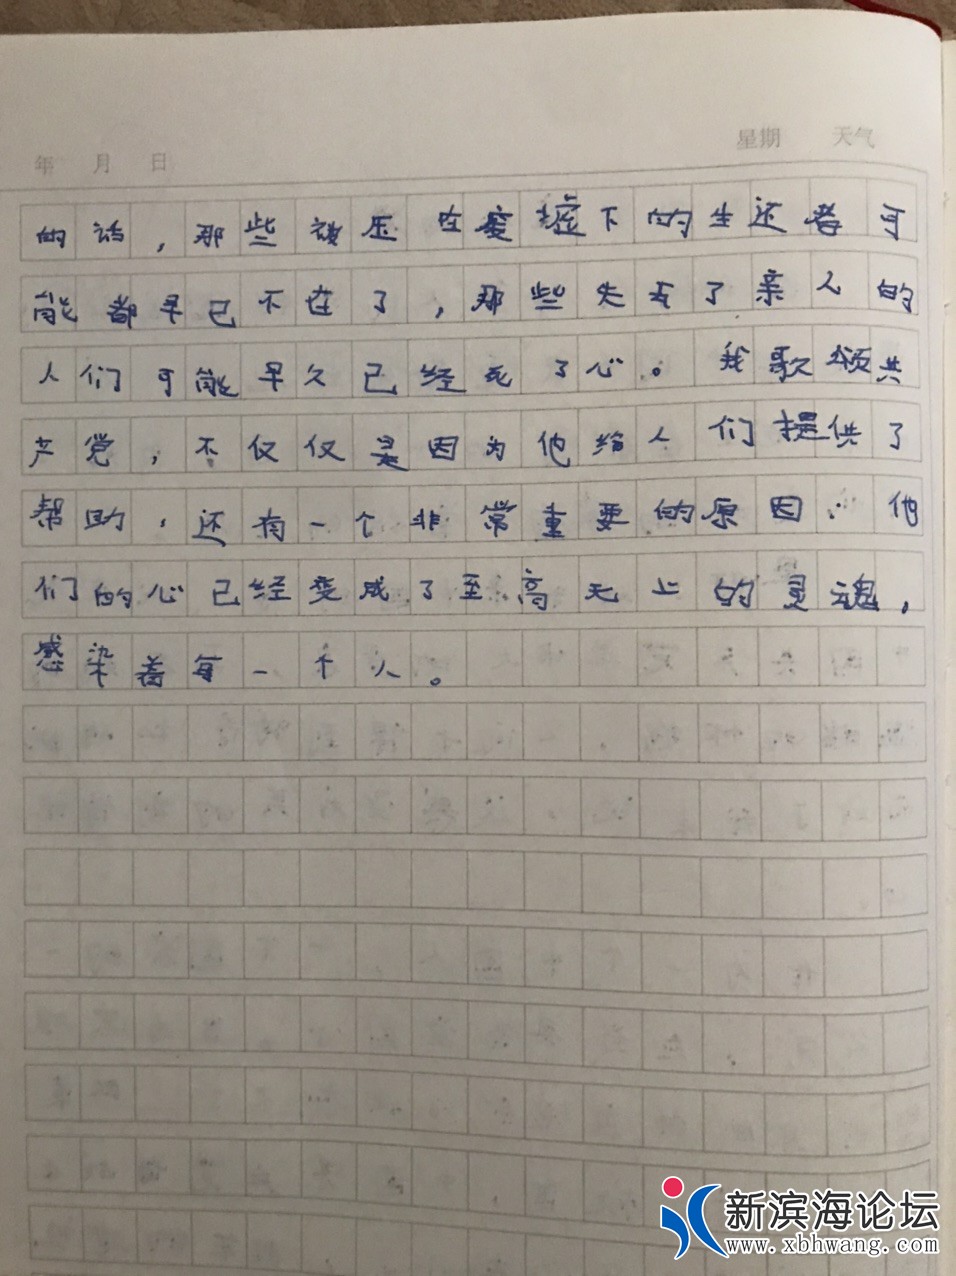 年 月 日 星期 天气
的话，那些被压在废墟下的生还者可
能都早已不在了，那些失去了亲人的
人们可能早久已经死了心。我歌颂共
产党，不仅仅是因为他给人们提供了
帮助，还有一个非常重要的原因：他
们的心已经变成了至高无上的灵魂，
感染着每一个人。
新滨海论坛
www.xbhwang.com